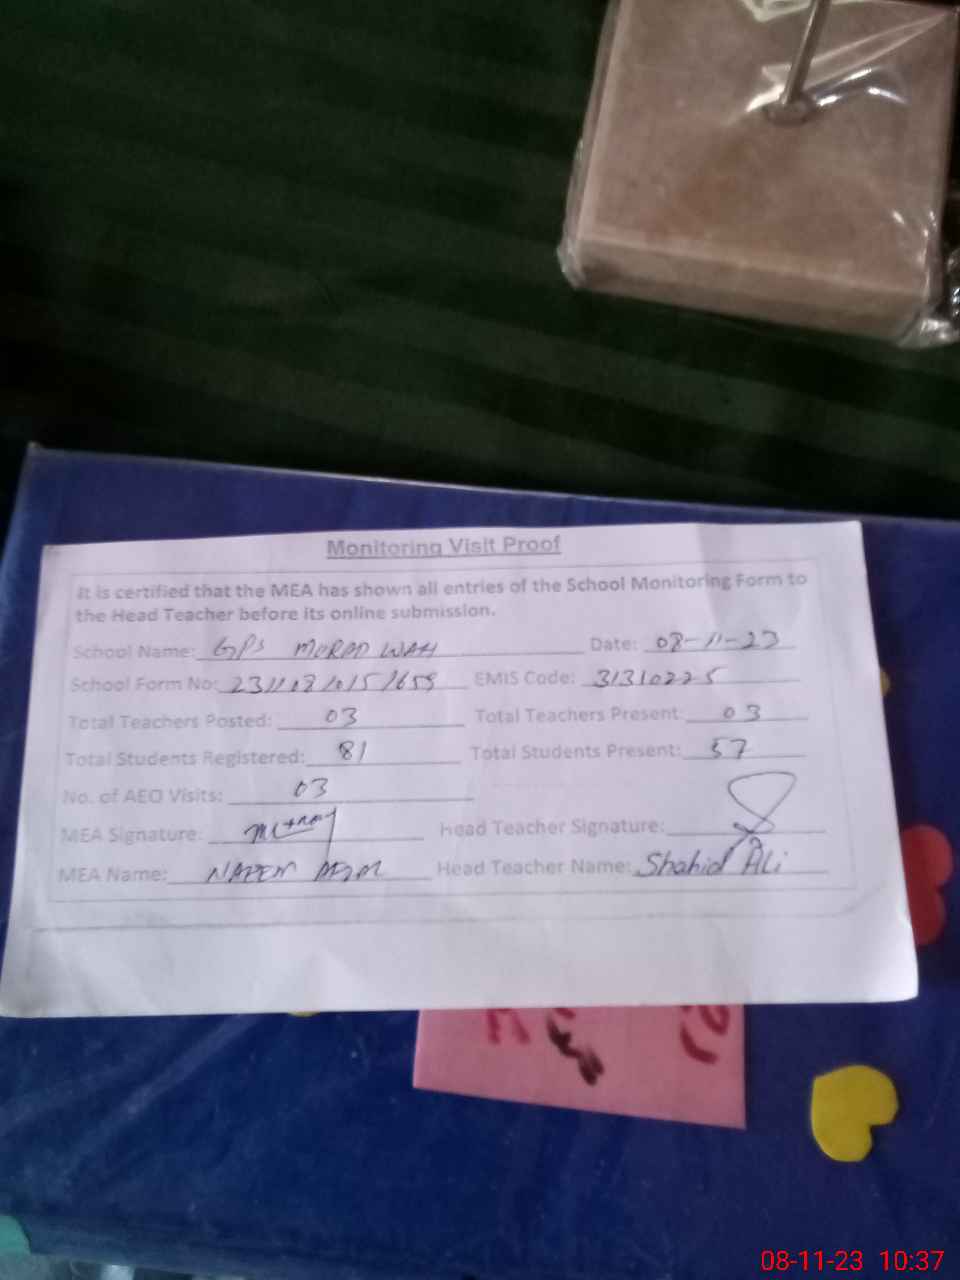 Monitoring Visit Proof
It is certified that the MEA has shown all entries of the School Monitoring Form to
the Head Teacher before its online submission.
School Name: GPS MORAD WAH Date: 08-11-23
School Form No: EMIS Code: 31310225
Total Teachers Posted: 03 Total Teachers Present: 03
Total Students Registered: 81 Total Students Present: 57
No. of AEO Visits: 03
MEA Signature: Head Teacher Signature:
MEA Name: Head Teacher Name: Shahid Ali
08-11-23 10:37